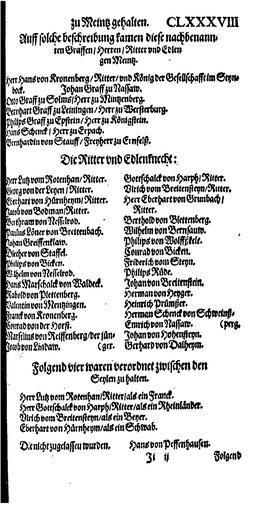 zu Meintz gehalten. CLXXXVIII
Auff solche beschreibung kamen diese nachbenann-
ten Graffen/Herren/Ritter und Edlen
gen Mentz.
Herr Hans von Kronenberg/Ritter/und König der Gesellschafft im Steyn-
bock. Johan Graff zu Nassaw.
Otto Graff zu Solms/Herr zu Mintzenberg.
Bernhart Graff zu Leiningen/Herr zu Westerburg.
Philips Graff zu Epstein/Herr zu Königstein.
Hans Schenck/Herr zu Erpach.
Bernhardin von Stauff/Freyherr zu Ernfelß.
Die Ritter und Edlenknecht:
Herr Lutz vom Rotenhan/Ritter.
Georg von der Leyen/Ritter.
Eberhart von Hürnheym/Ritter.
Jacob von Bodman/Ritter.
Berthram von Nesselrod.
Paulus Löner von Breitenbach.
Johan Greiffenklaw.
Diether von Staffel.
Philips von Bicken.
Wilhelm von Nesselrod.
Hans Marschalck von Waldeck.
Rabold von Plettenberg.
Valentin von Mentzingen.
Franck von Kronenberg.
Conrad von der Horst.
Marsilius von Reiffenberg/der jün-
Jacob von Landaw. (ger.
Gottschalck von Harph/Ritter.
Ulrich von Breitenstein/Ritter.
Herr Eberhart von Grunbach/
Ritter.
Berthold von Plettenberg.
Wilhelm von Bernsauw.
Philips von Wolffskele.
Conrad von Bicken.
Friderich vom Steyn.
Philips Rüde.
Johan von Breitenstein.
Herman von Heyger.
Heinrich Prümsser.
Herman Schenck von Schweinß-
Emrich von Nassaw. (perg.
Johan von Hohensteyn.
Gerhart von Dalheym.
Folgend vier waren verordnet zwischen den
Seylen zu halten.
Herr Lutz vom Rotenhan/Ritter/als ein Franck.
Herr Gottschalck von Harph/Ritter/als ein Rheinländer.
Ulrich vom Breitensteyn/als ein Beyer.
Eberhart von Hürnheym/als ein Schwab.
Die nicht zugelassen wurden. Hans von Peffenhausen.
Ii ij Folgend